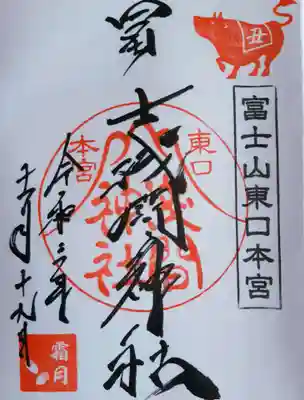 丑
富士山東口本宮
冨士浅間神社
東口
本宮
浅間
神社
令和三年
十一月十九日
霜月